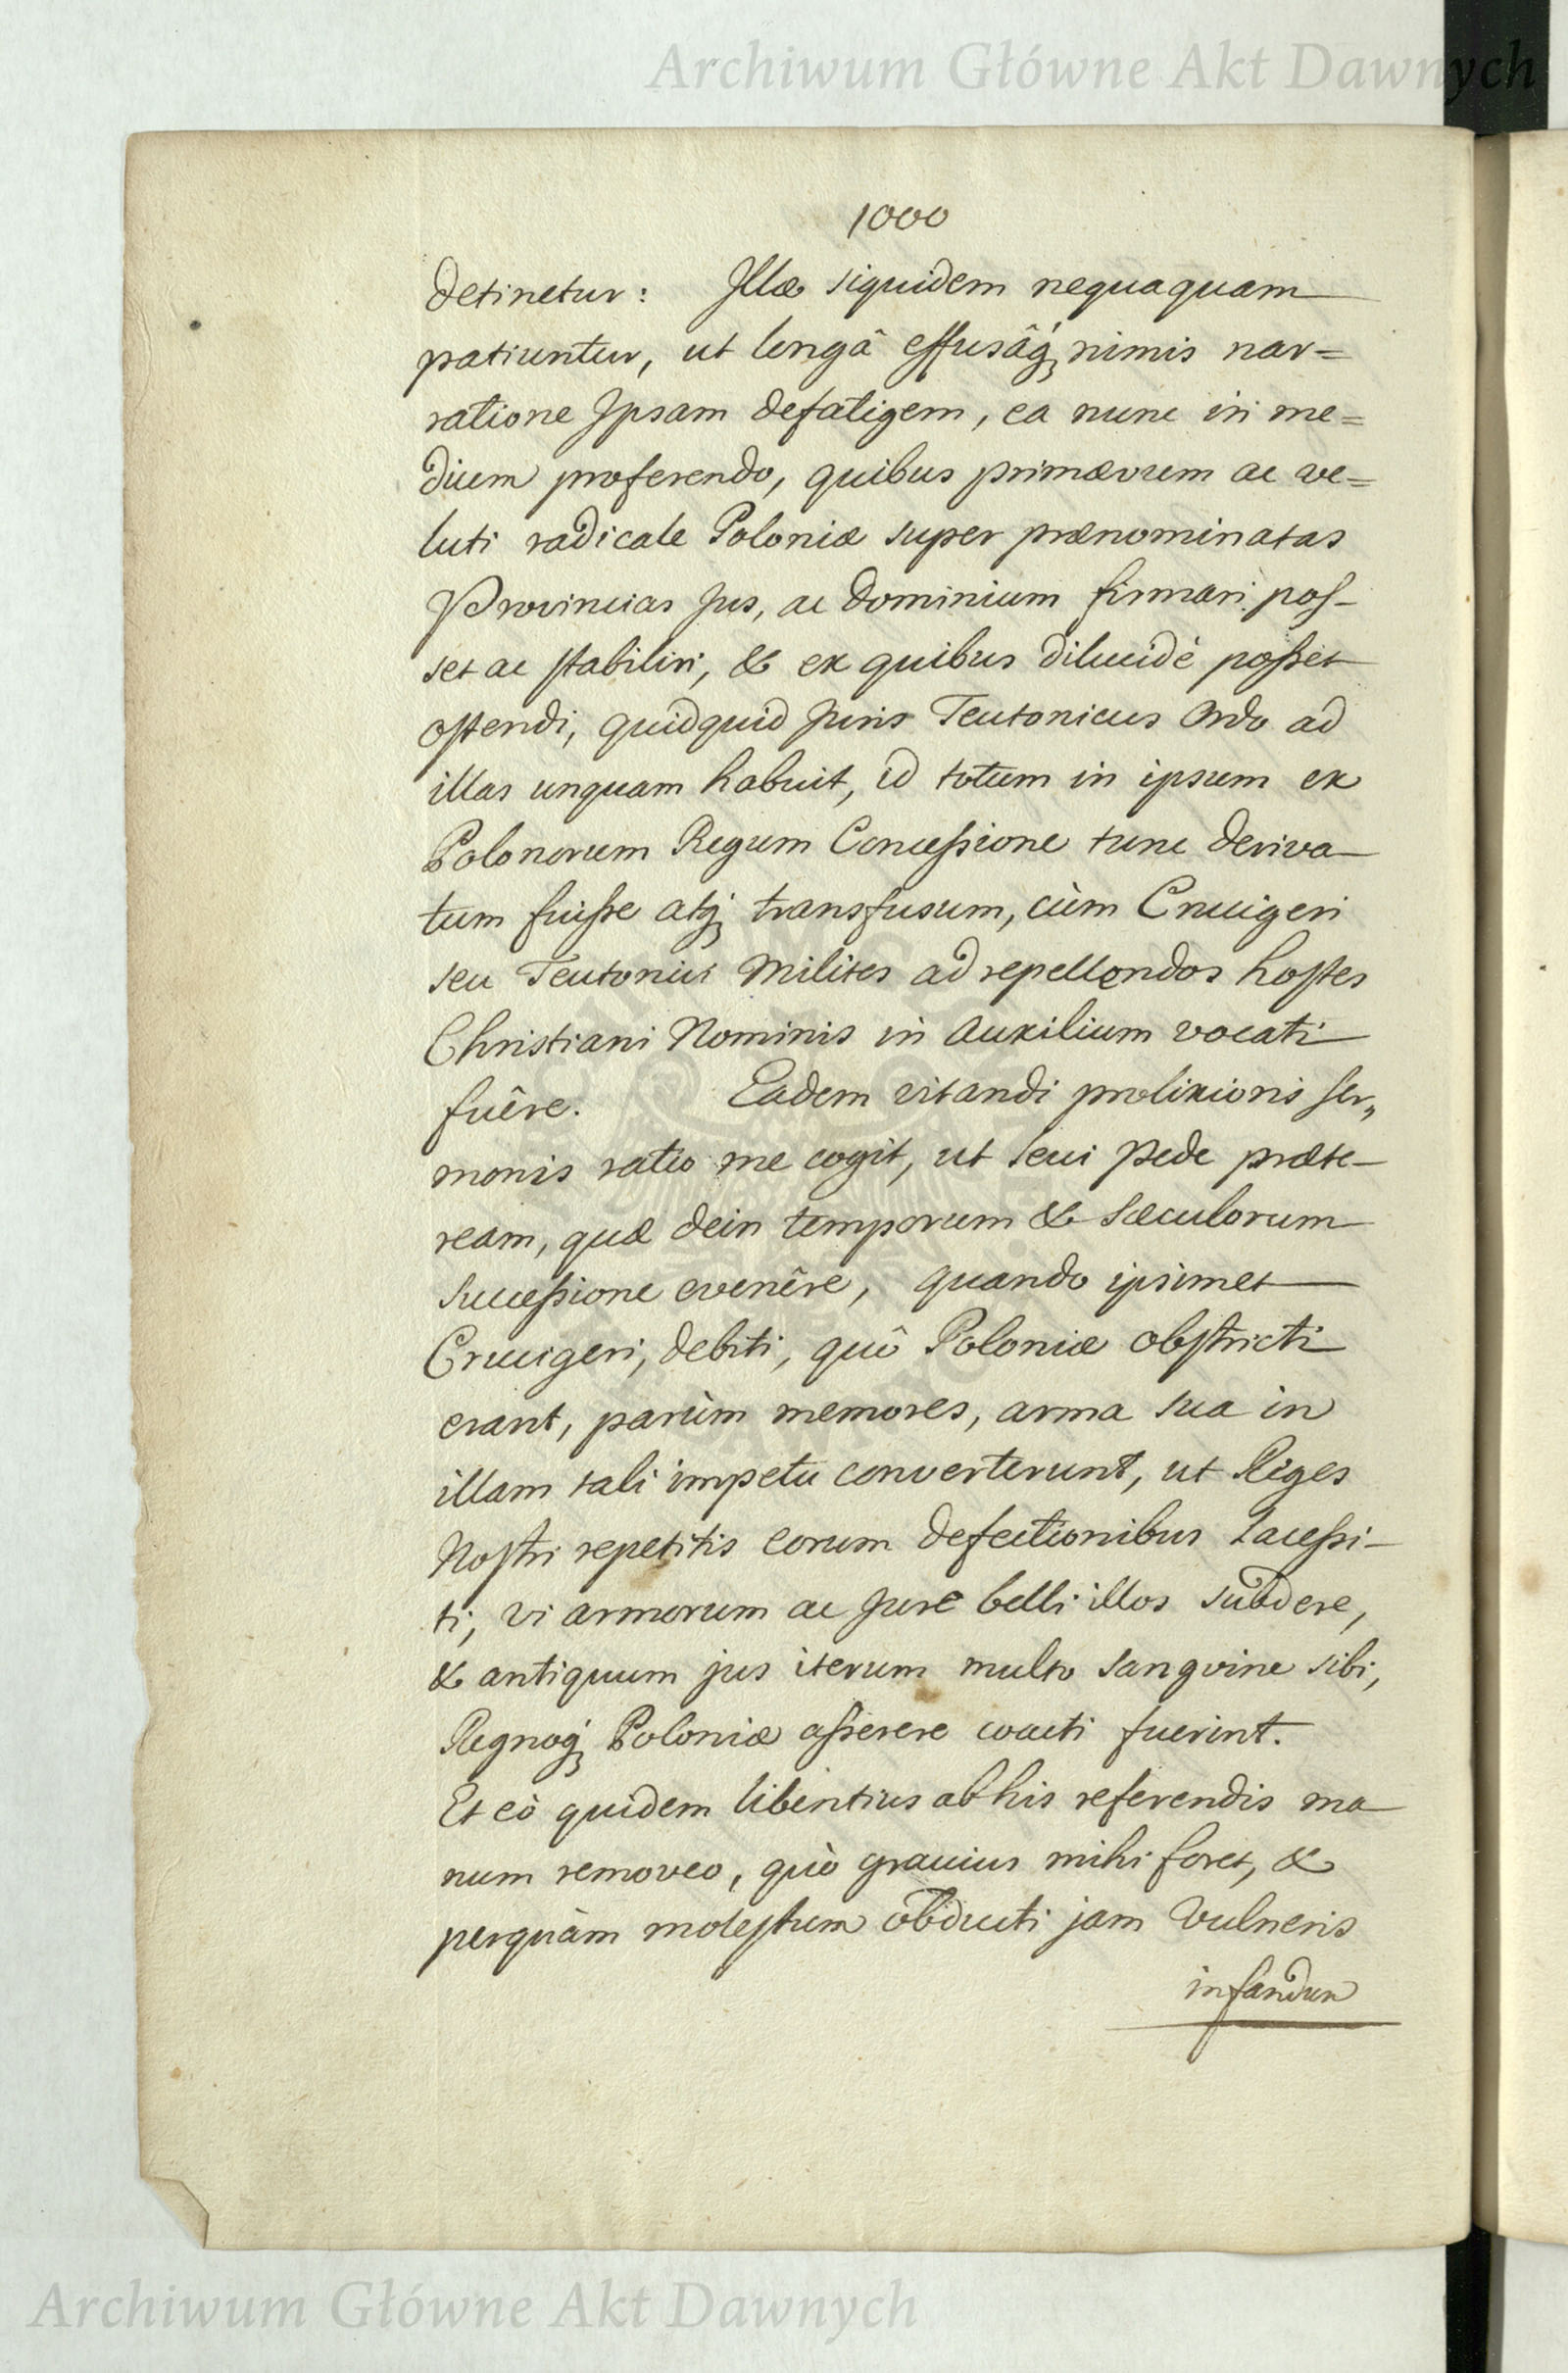 Archiwum Główne Akt Dawnych
1000
detinetur: Illæ siquidem nequaquam
patiuntur, ut longâ effusâq; nimis nar=
ratione Ipsam defatigem, ea nunc in me=
dium proferendo, quibus primævum ac ve=
luti radicale Poloniæ super prænominatas
Provincias Jus, ac Dominium firmari pos-
set ac stabiliri, & ex quibus dilucidè posset
ostendi, quidquid Juris Teutonicus Ordo ad
illas unquam habuit, id totum in ipsum ex
Polonorum Regum Concessione tunc deriva-
tum fuisse atq; transfusum, cùm Crucigeri
seu Teutonici Milites ad repellendos hostes
Christiani Nominis in Auxilium vocati
fuêre. Eadem vitandi prolixioris ser„
monis ratio me cogit, ut levi pede præte-
ream, quæ dein temporum & Sæculorum
Successione evenêre, quando ipsimet
Crucigeri, debiti, quô Poloniæ obstricti
erant, parùm memores, arma sua in
illam tali impetu converterunt, ut Reges
Nostri repetitis eorum defectionibus lacessi-
ti, vi armorum ac Jure belli illos subdere,
& antiquum jus iterum multo sangvine sibi,
Regnoq; Poloniæ asserere coacti fuerint.
Et eò quidem libentius ab his referendis ma-
num removeo, quò gravius mihi foret, &
perquàm molestum obducti jam Vulneris
infandum
Archiwum Główne Akt Dawnych